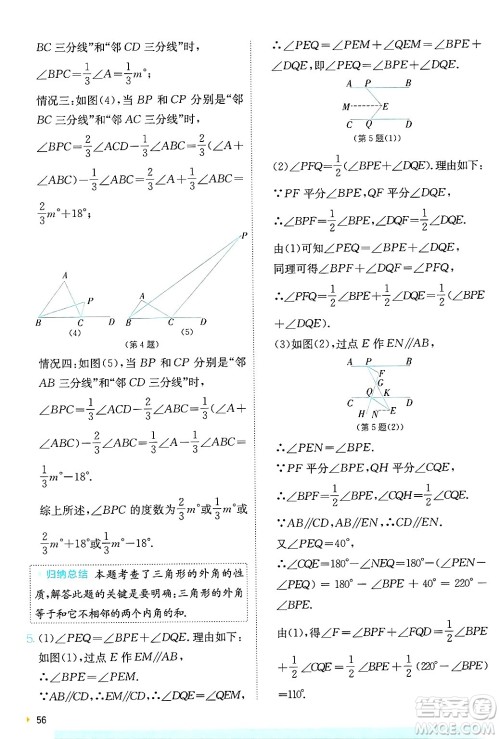 BC 三分线”和“邻 CD 三分线”时,
∠BPC=1/3∠A=1/3m°;
情况三:如图(4),当 BP 和 CP 分别是“邻
BC 三分线”和“邻 AC 三分线”时,
∠BPC=2/3∠ACD−1/3∠ABC=2/3(∠A+
∠ABC)−1/3∠ABC=2/3∠A+1/3∠ABC=
2/3m°+18°.
A
P
B
C
D
(4)
P
A
B
C
D
(5)
(第 4 题)
情况四:如图(5),当 BP 和 CP 分别是“邻
AB 三分线”和“邻 CD 三分线”时,
∠BPC=1/3∠ACD−2/3∠ABC=1/3(∠A+
∠ABC)−2/3∠ABC=1/3∠A−1/3∠ABC=
1/3m°−18°.
综上所述,∠BPC 的度数为2/3m°或1/3m°或
2/3m°+18°或1/3m°−18°.
归纳总结 本题考查了三角形的外角的性
质,解答此题的关键是要明确:三角形的外角
等于和它不相邻的两个内角的和.
5. (1)∠PEQ=∠BPE+∠DQE. 理由如下:
如图(1),过点 E 作 EM//AB,
∴∠PEM=∠BPE.
∵AB//CD,∴EM//CD,∴∠MEQ=∠DQE,
56
∴∠PEQ=∠PEM+∠MEQ=∠BPE+
∠DQE,即∠PEQ=∠BPE+∠DQE.
A P B
M E
C Q D
(第 5 题(1))
(2)∠PFQ=1/2∠PEQ. 理由如下:
∵PF 平分∠BPE,QF 平分∠DQE,
∴∠BPF=1/2∠BPE,∠DQF=1/2∠DQE.
由(1)可知∠PEQ=∠BPE+∠DQE,
同理可得∠BPF+∠DQF=∠PFQ,
∴∠PFQ=1/2∠PEQ.
(3)如图(2),过点 E 作EN//AB,
A P B
F
G
C Q K D
H N E
(第 5 题(2))
∴∠PEN=∠BPE.
∵PF 平分∠BPE,QH 平分∠CQE,
∴∠BPF=1/2∠BPE,∠CQH=1/2∠CQE.
∵AB//CD,∴EN//CD.
又∵∠PEQ=40°,
∴∠CQE=180°−∠NEQ=180°−(∠BPE−
∠PEQ)=180°−∠BPE+40°=220°−∠BPE,
∴1/2∠BPE+1/2∠CQE=1/2∠BPE+1/2(220°−
∠BPE)=1/2∠BPE+1/2(220°−∠BPE)
=110°.
作业帮